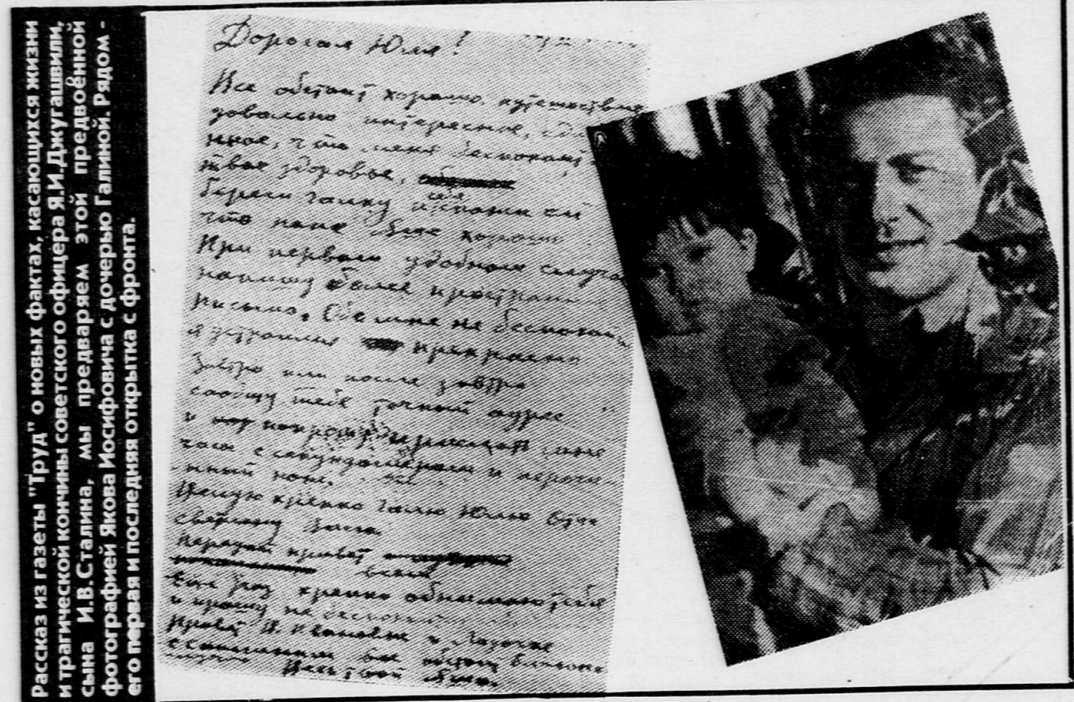 Рассказ из газеты "Труд" о новых фактах, касающихся жизни
и трагической кончины советского офицера Я.И.Джугашвили,
сына И.В.Сталина, мы предваряем этой предвоённой
фотографией Якова Иосифовича с дочерью Галиной. Рядом -
его первая и последняя открытка с фронта.
Дорогая Юля!
Все обстоит хорошо, путешествие
довольно интересное,
что меня беспокоит
твое здоровье,
береги Галку и скажи ей
что папе хорошо
При первом удобном случае
напишу более пространное
письмо. Обо мне не беспокойся
я устроился прекрасно
Завтра или после завтра
сообщу тебе точный адрес
и прислать мне
часы с секундомером и перочин-
ный нож.
Целую крепко Галю Юлю
Светлану Васю
Передай привет
всем
Еще раз крепко обнимаю тебя
и прошу не беспокоиться
Привет В. Ивановне и Лидочке
все обстоит
Весь твой Яша.